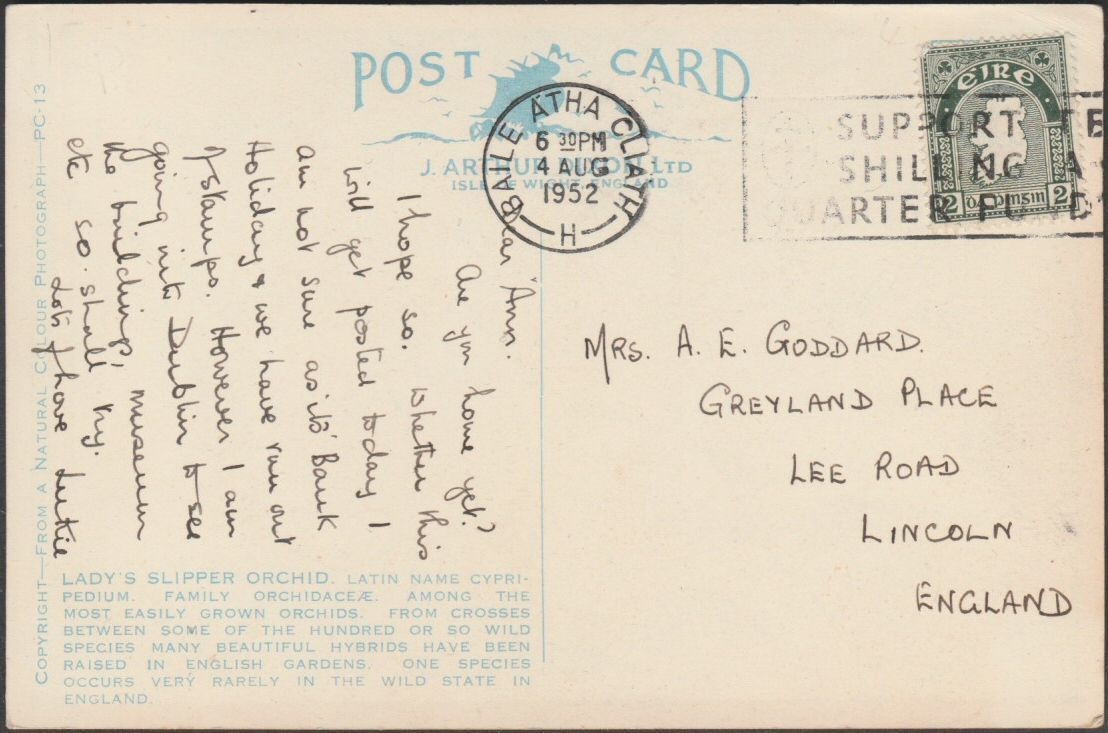 POST CARD
J. ARTHUR DIXON LTD
ISLE OF WIGHT, ENGLAND
BAILE ÁTHA CLIATH
6 30PM
4 AUG
1952
H
SUPPORT
SHILLING A
QUARTER FUND
EIRE
2 2
Dear Ann.
Are you home yet?
I hope so. Whether this
will get posted today I
am not sure as it's Bank
Holiday & we have run out
of stamps. However I am
going into Dublin to see
the buildings, museum
etc so shall try.
Lots of love
MRS. A. E. GODDARD.
GREYLAND PLACE
LEE ROAD
LINCOLN
ENGLAND
LADY'S SLIPPER ORCHID. LATIN NAME CYPRI-
PEDIUM. FAMILY ORCHIDACEÆ. AMONG THE
MOST EASILY GROWN ORCHIDS. FROM CROSSES
BETWEEN SOME OF THE HUNDRED OR SO WILD
SPECIES MANY BEAUTIFUL HYBRIDS HAVE BEEN
RAISED IN ENGLISH GARDENS. ONE SPECIES
OCCURS VERY RARELY IN THE WILD STATE IN
ENGLAND.
COPYRIGHT—FROM A NATURAL COLOUR PHOTOGRAPH—PC-13